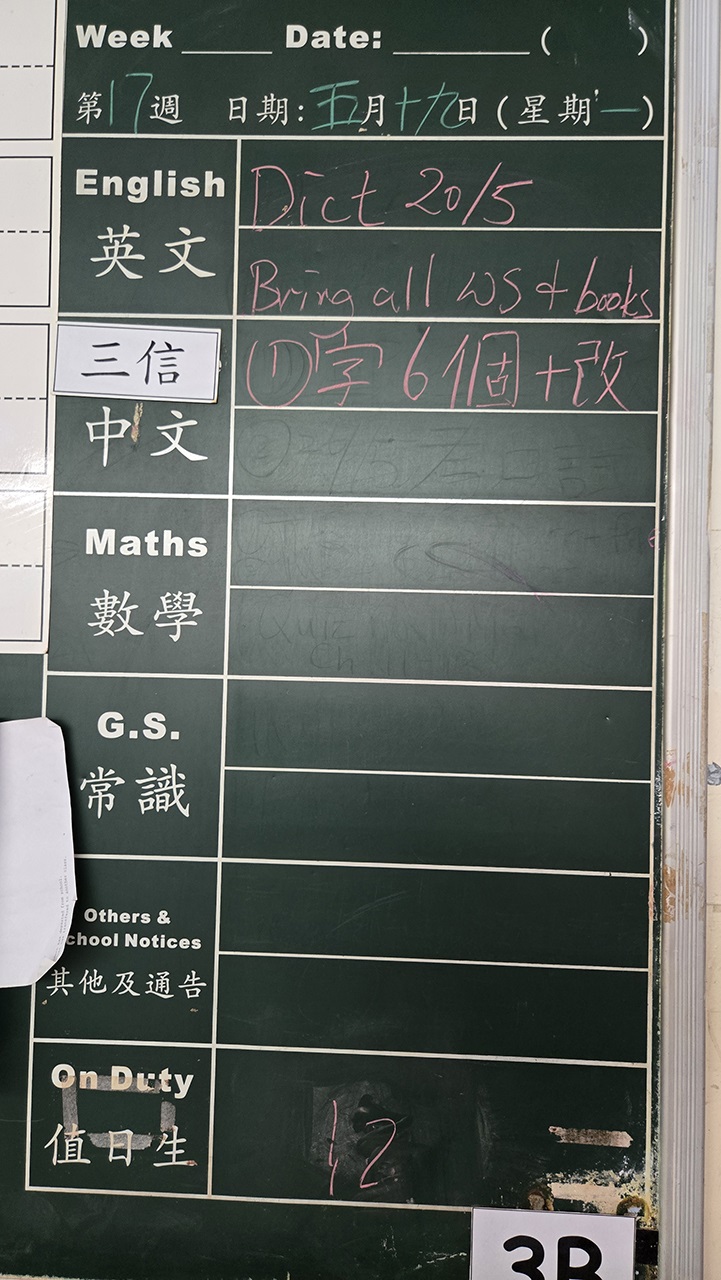 Week ____ Date: ______ ( )
第17週 日期:五月十九日(星期一)
English Dict 20/5
英文
Bring all WS & books
三信 ①字6個+改
中文
Maths
數學
G.S.
常識
Others &
chool Notices
其他及通告
On Duty
值日生 12
3B